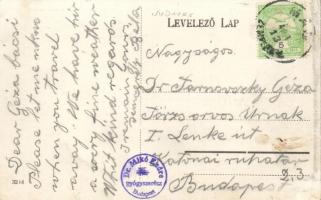 LEVELEZŐ LAP
Dear Géza bácsi
Please let me know
when you travel
away. We have hir
a very fine weather
With kind regards
Nagyságos.
Dr Tarnovszky Géza
Törzsorvos Urnak
I. Lenke út
Katonai ruhatár
2.3
Budapest
Dr. Mikó Endre
gyógyszerész
Budapest